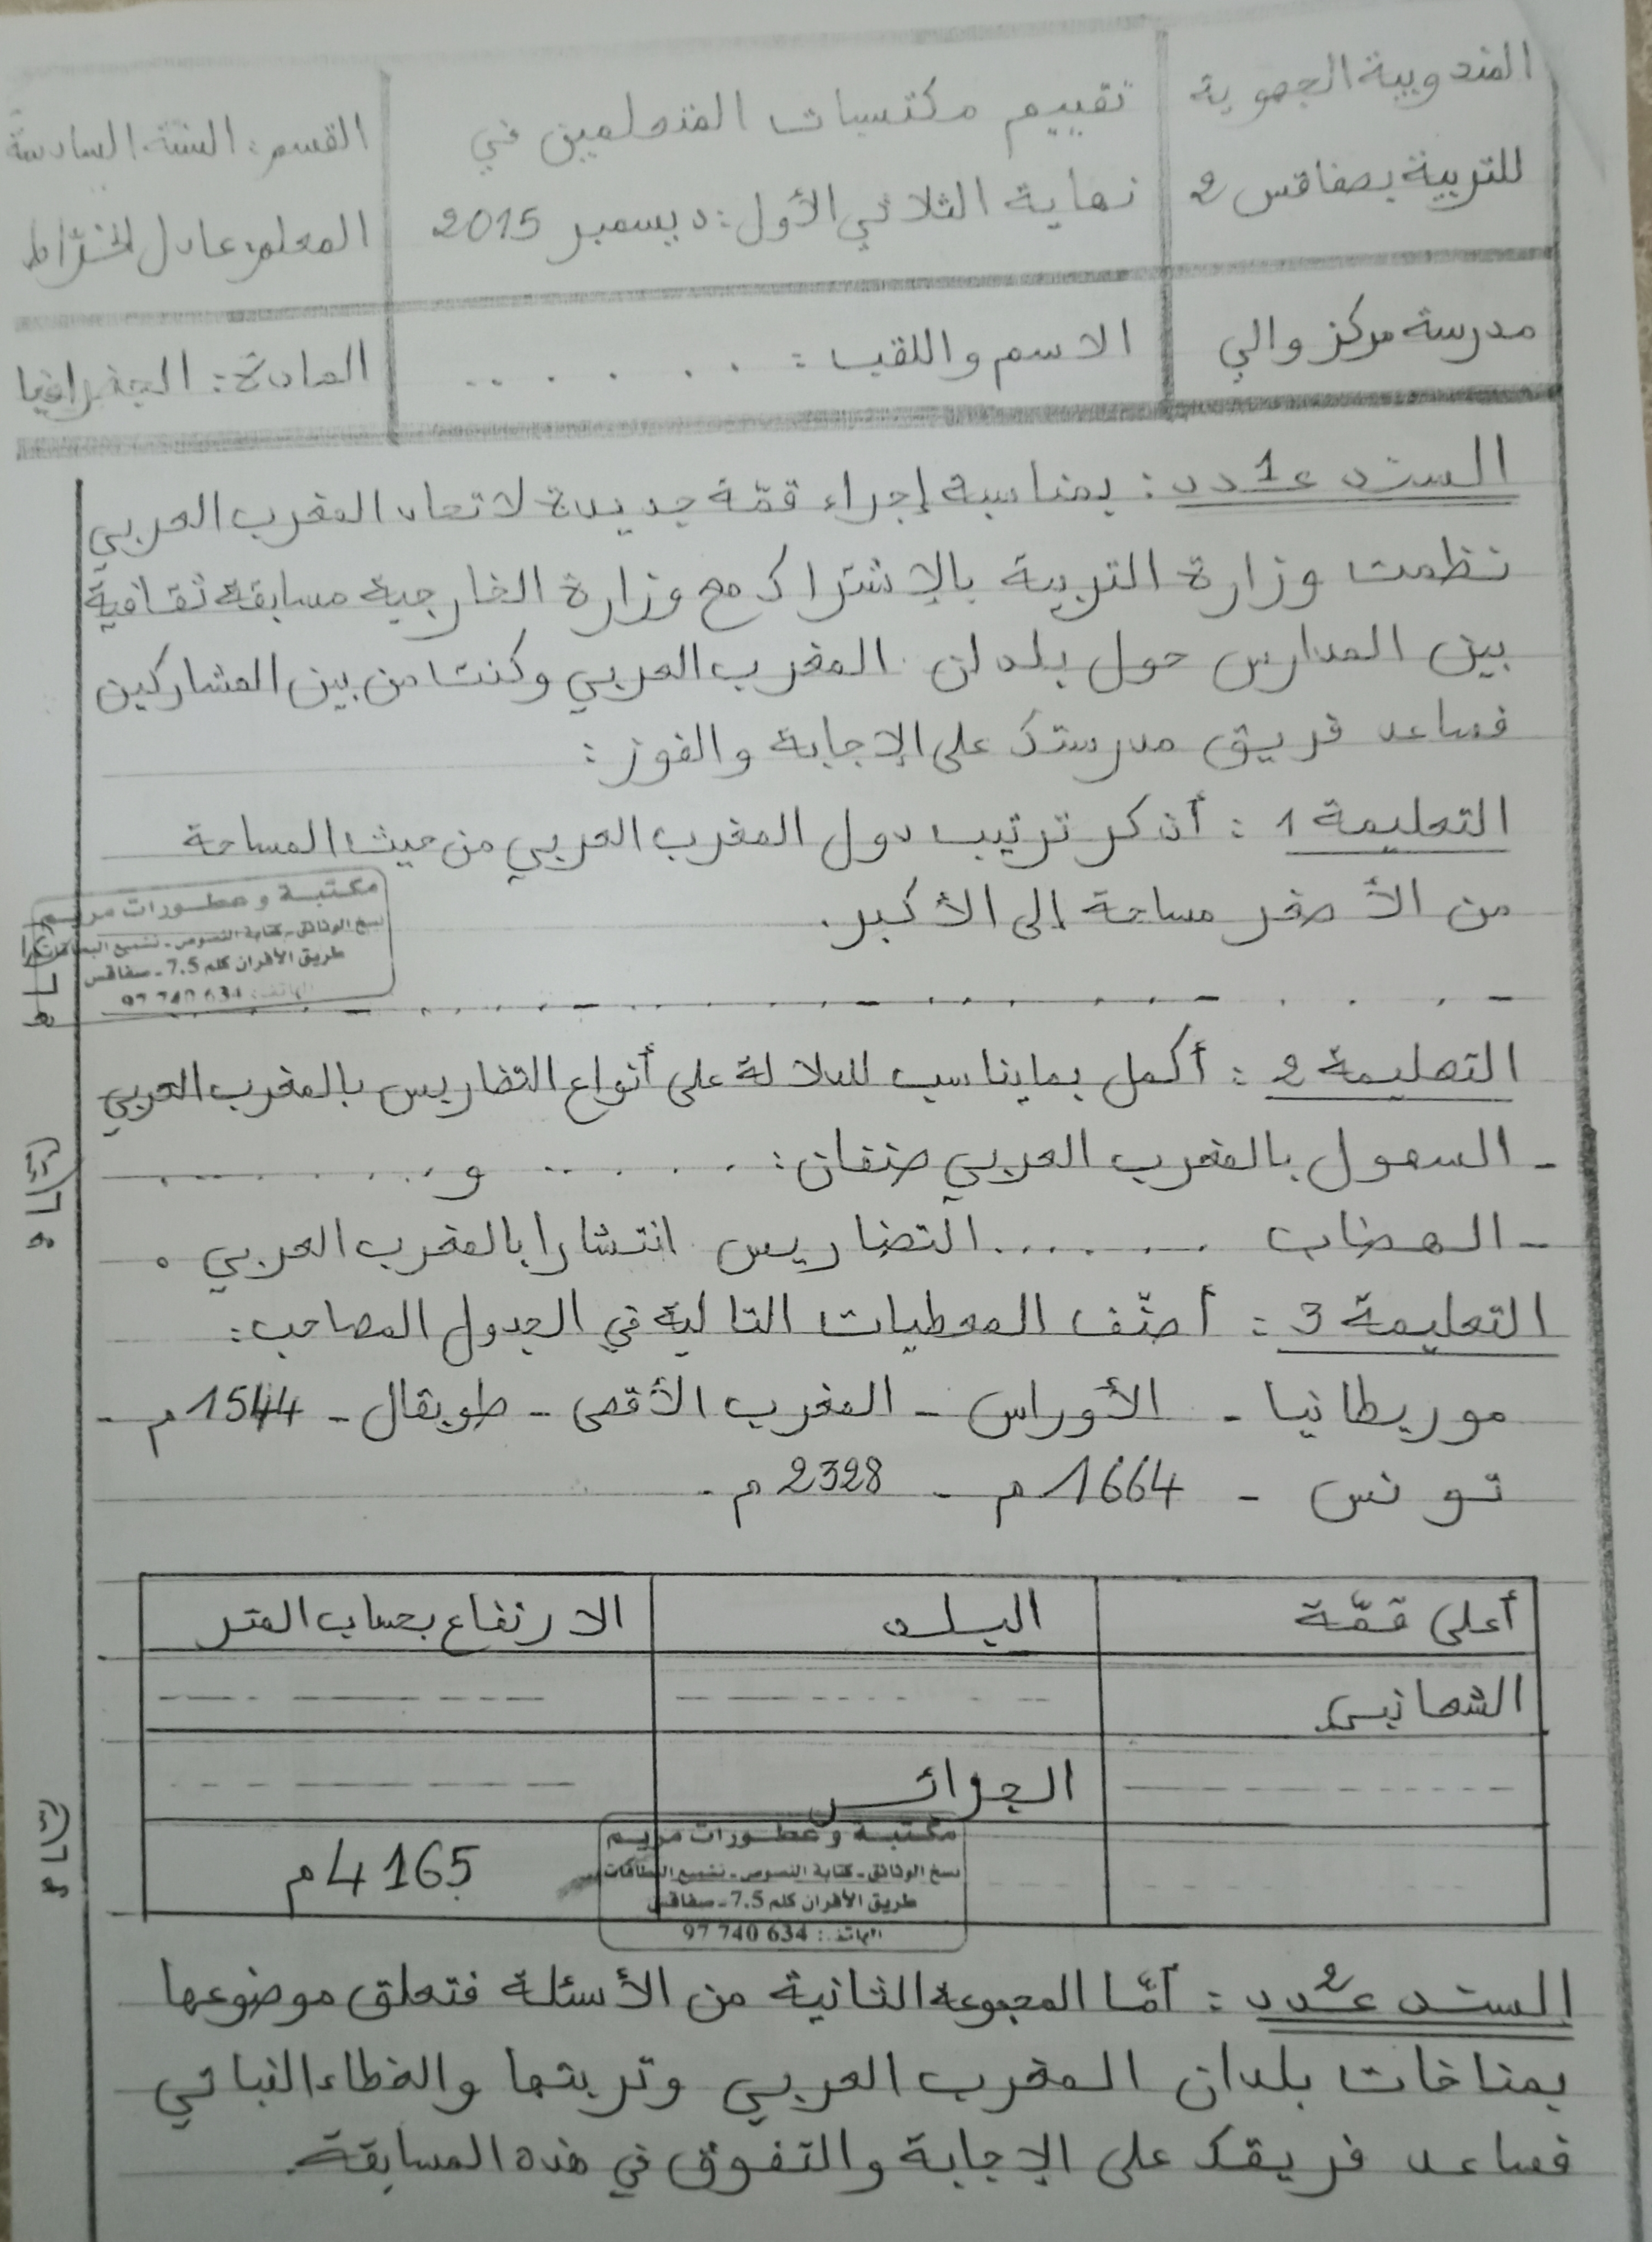 المندوبية الجهوية
للتربية بصفاقس 2
تقييم مكتسبات المتعلمين في
نهاية الثلاثي الأول: ديسمبر 2015
القسم: السنة السادسة
المعلم: عادل الخرّاط
مدرسة مركز والي
الاسم واللقب: . . . . . . .
المادة: الجغرافيا
السند عـ1ـدد: بمناسبة إجراء قمّة جديدة لاتحاد المغرب العربي
نظمت وزارة التربية بالإشتراك مع وزارة الخارجية مسابقة ثقافية
بين المدارس حول بلدان المغرب العربي وكنت من بين المشاركين
فساعد فريق مدرستك على الإجابة والفوز:
التعليمة 1: أذكر ترتيب دول المغرب العربي من حيث المساحة
من الأصغر مساحة إلى الأكبر.
مكتبة و عطورات مريم
نسخ الوثائق - كتابة النصوص - تشميع البطاقات
طريق الأفران كلم 7.5 - صفاقس
الهاتف: 634 740 97
التعليمة 2: أكمل بما يناسب للدلالة على أنواع التضاريس بالمغرب العربي
- السهول بالمغرب العربي صنفان: . . . . . . و . . . . . . . .
- الهضاب . . . . . . . التضاريس انتشارا بالمغرب العربي.
التعليمة 3: أصنّف المعطيات التالية في الجدول المصاحب:
موريطانيا - الأوراس - المغرب الأقصى - طوبقال - 1544م -
تونس - 1664م - 2328م -
أعلى قمّة البلد الارتفاع بحساب المتر
الشعانبي
الجزائر
4165م
مكتبة و عطورات مريم
نسخ الوثائق - كتابة النصوص - تشميع البطاقات
طريق الأفران كلم 7.5 - صفاقس
الهاتف: 634 740 97
السند عـ2ـدد: أمّا المجموعة الثانية من الأسئلة فتعلق موضوعها
بمناخات بلدان المغرب العربي وتربتها والغطاء النباتي
فساعد فريقك على الإجابة والتفوق في هذه المسابقة.